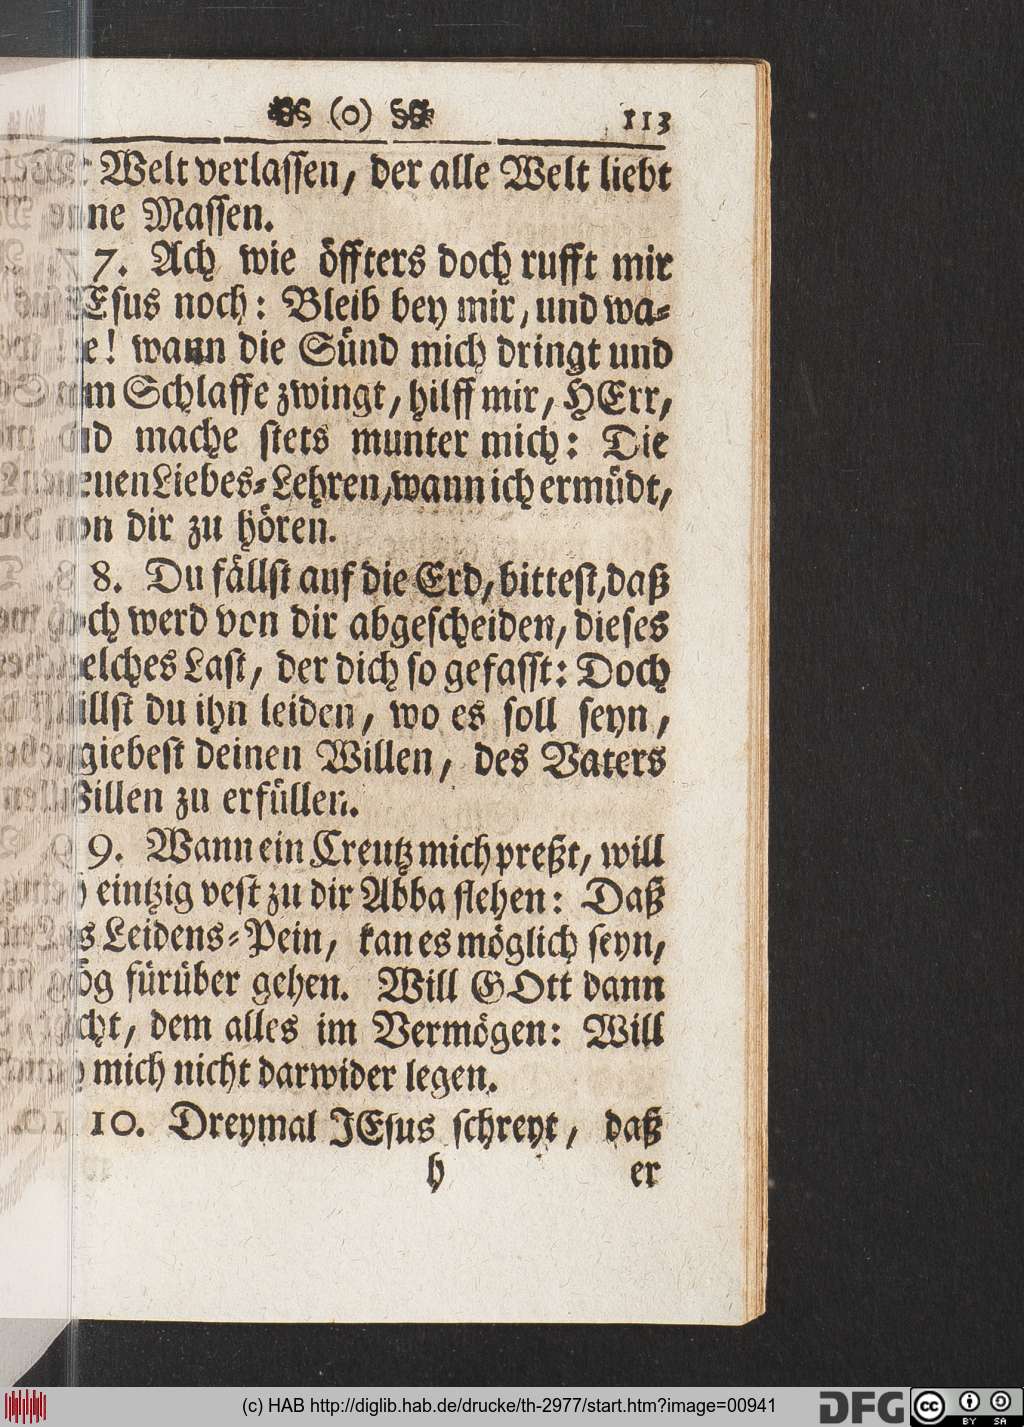 (o) 113
Welt verlassen, der alle Welt liebt
ohne Massen.
7. Ach wie öffters doch rufft mir
JEsus noch: Bleib bey mir, und wa-
che! wann die Sünd mich dringt und
zum Schlaffe zwingt, hilff mir, HErr,
und mache stets munter mich: Die
neuen Liebes-Lehren, wann ich ermüdt,
von dir zu hören.
8. Du fällst auf die Erd, bittest, daß
doch werd von dir abgescheiden, dieses
Kelches Last, der dich so gefasst: Doch
willst du ihn leiden, wo es soll seyn,
giebest deinen Willen, des Vaters
Willen zu erfüllen.
9. Wann ein Creutz mich preßt, will
ich eintzig vest zu dir Abba flehen: Daß
des Leidens-Pein, kan es möglich seyn,
mög fürüber gehen. Will GOtt dann
nicht, dem alles im Vermögen: Will
ich mich nicht darwider legen.
10. Dreymal JEsus schreyt, daß
h er
(c) HAB http://diglib.hab.de/drucke/th-2977/start.htm?image=00941
DFG
cc BY SA